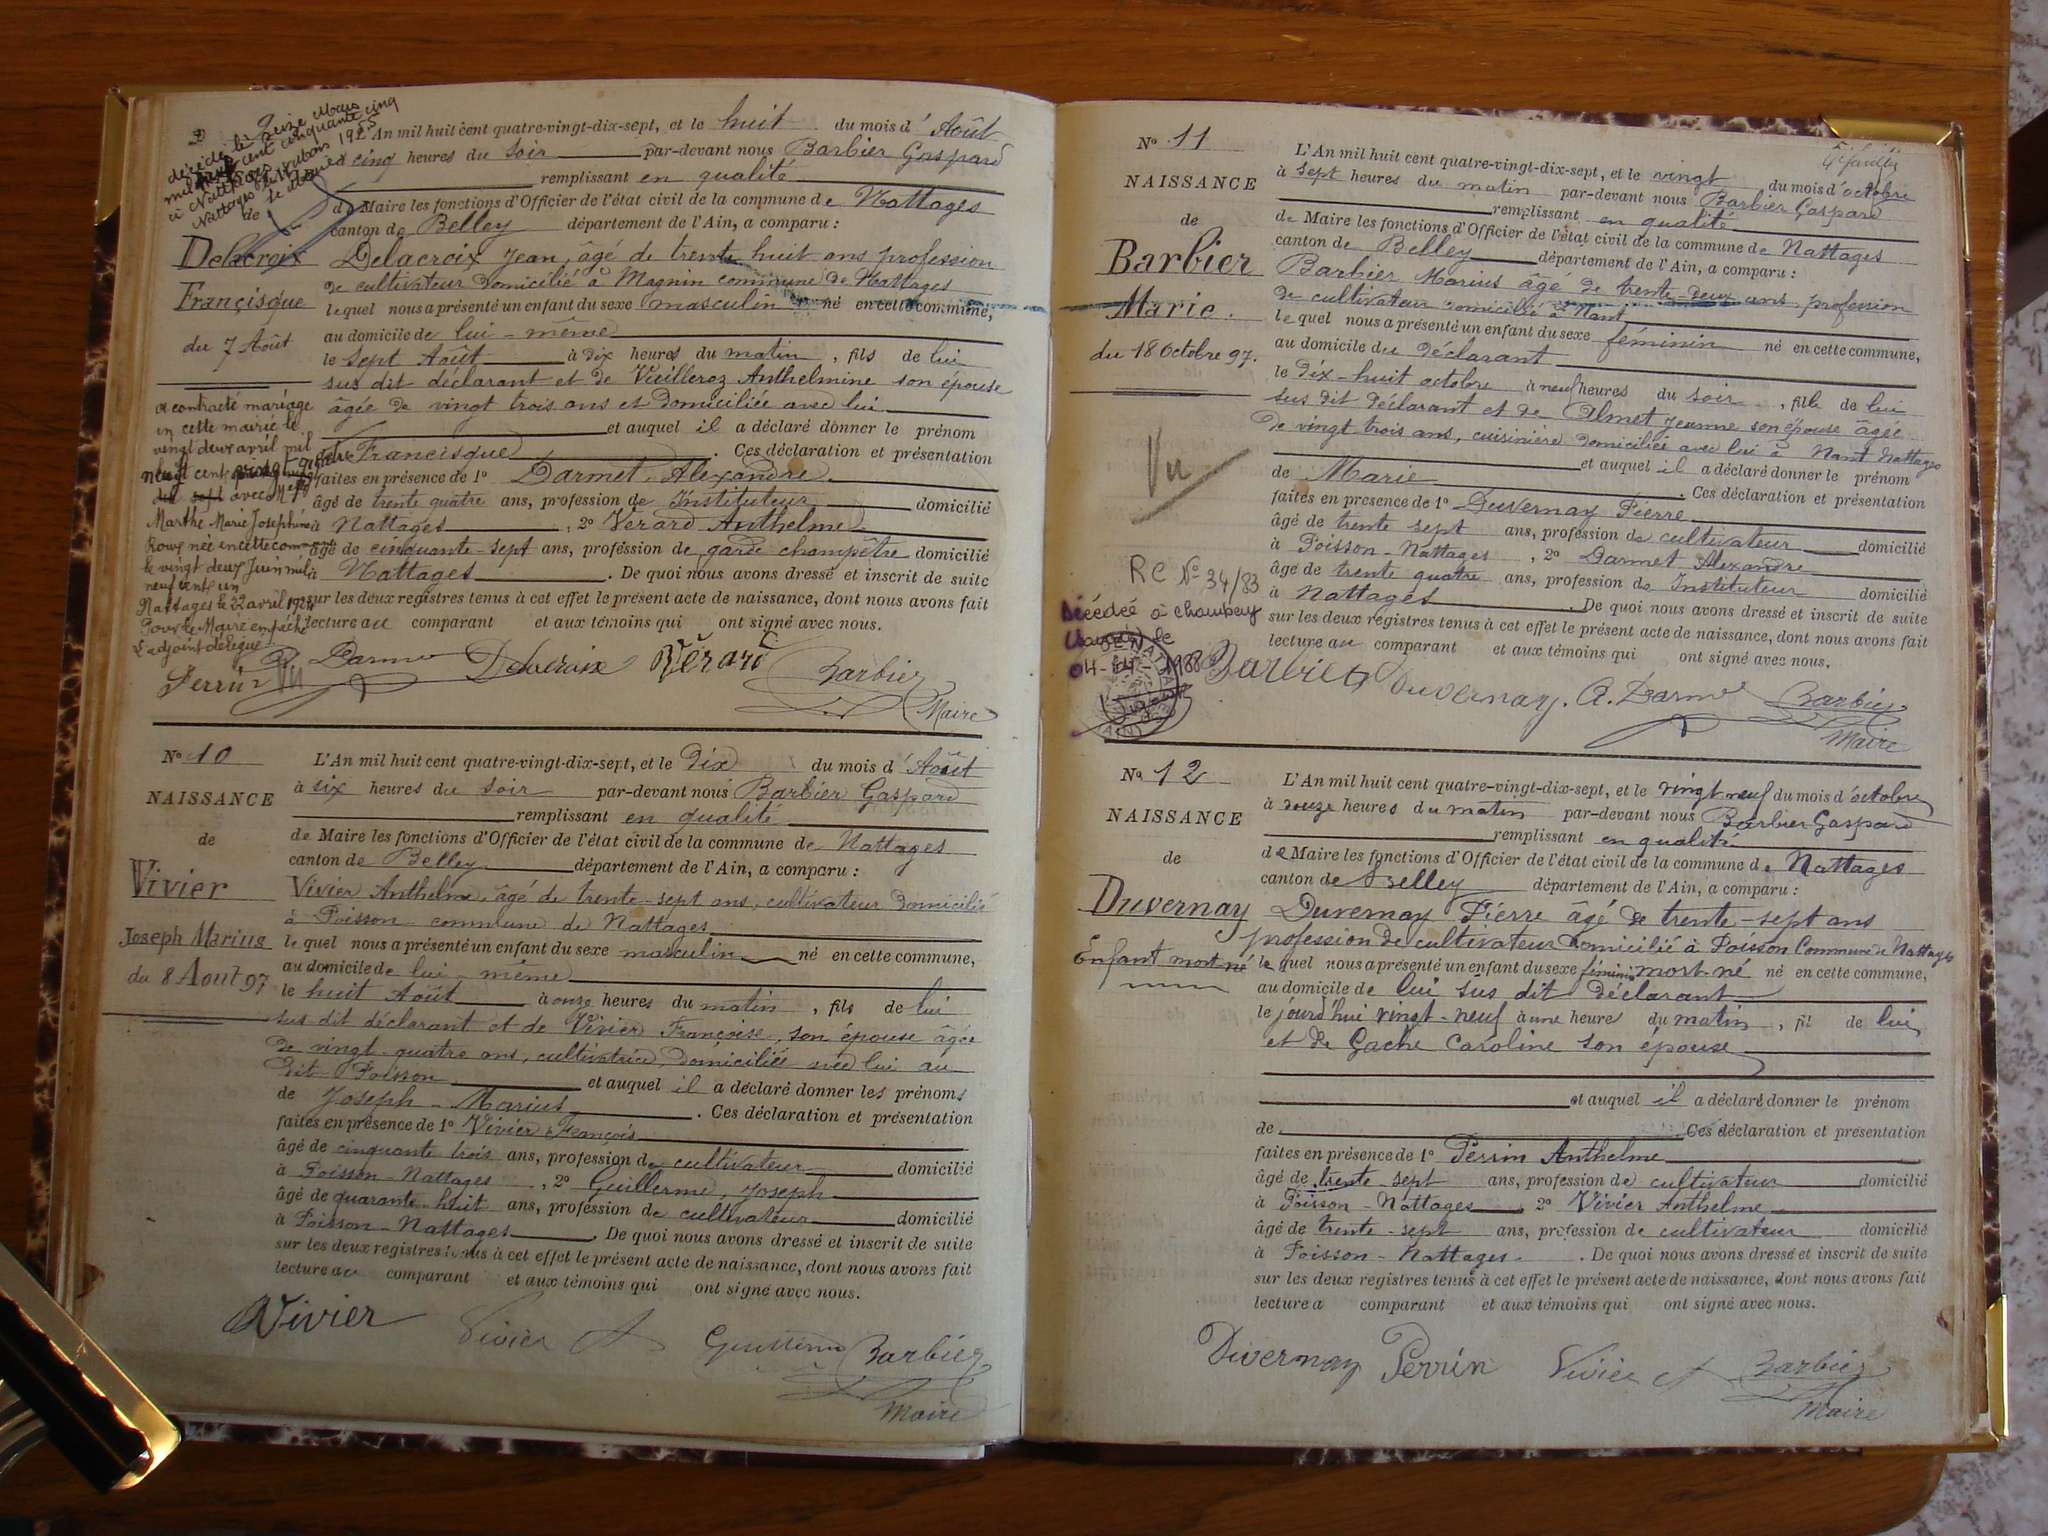 décédé le seize Mars
cent cinquante cinq
à Nattages
Nattages le 1955
de
Delacroix
Françisque
du 7 Août
a contracté mariage
en cette mairie le
vingt deux avril mil
neuf cent
avec
Marthe Marie Josephine
Roux née en cette commune
le vingt deux Juin mil
neuf cent un
Nattages le 22 avril
Pour le Maire empêché
L'adjoint délégué
Perrin
Vu
L'An mil huit cent quatre-vingt-dix-sept, et le huit du mois d'Août
à cinq heures du soir par-devant nous Barbier Gaspard
remplissant en qualité
de Maire les fonctions d'Officier de l'état civil de la commune de Nattages
canton de Belley département de l'Ain, a comparu :
Delacroix Jean, âgé de trente huit ans profession
de cultivateur domicilié à Magnin commune de Nattages
lequel nous a présenté un enfant du sexe masculin né en cette commune,
au domicile de lui-même
le sept Août à dix heures du matin, fils de lui
sus dit déclarant et de Vieilleroz Anthelmine son épouse
âgée de vingt trois ans et domiciliée avec lui
et auquel il a déclaré donner le prénom
de Francisque. Ces déclaration et présentation
faites en présence de 1º Darmet, Alexandre
âgé de trente quatre ans, profession de Instituteur domicilié
à Nattages, 2º Verard Anthelme
âgé de cinquante-sept ans, profession de garde champêtre domicilié
à Nattages. De quoi nous avons dressé et inscrit de suite
sur les deux registres tenus à cet effet le présent acte de naissance, dont nous avons fait
lecture au comparant et aux témoins qui ont signé avec nous.
Delacroix Vérard Barbier
Maire
Nº 10
NAISSANCE
de
Vivier
Joseph Marius
du 8 Août 97
L'An mil huit cent quatre-vingt-dix-sept, et le dix du mois d'Août
à six heures du soir par-devant nous Barbier Gaspard
remplissant en qualité
de Maire les fonctions d'Officier de l'état civil de la commune de Nattages
canton de Belley département de l'Ain, a comparu :
Vivier Anthelme, âgé de trente-sept ans, cultivateur domicilié
à Poisson commune de Nattages
lequel nous a présenté un enfant du sexe masculin né en cette commune,
au domicile de lui-même
le huit Août à onze heures du matin, fils de lui
sus dit déclarant et de Vivier Françoise, son épouse âgée
de vingt-quatre ans, cultivatrice, domiciliée avec lui au
dit Poisson et auquel il a déclaré donner les prénoms
de Joseph-Marius. Ces déclaration et présentation
faites en présence de 1º Vivier François
âgé de cinquante trois ans, profession de cultivateur domicilié
à Poisson-Nattages, 2º Guillerme, Joseph
âgé de quarante-huit ans, profession de cultivateur domicilié
à Poisson-Nattages. De quoi nous avons dressé et inscrit de suite
sur les deux registres tenus à cet effet le présent acte de naissance, dont nous avons fait
lecture au comparant et aux témoins qui ont signé avec nous.
Vivier Vivier Barbier
Maire
Nº 11
NAISSANCE
de
Barbier
Marie.
du 18 Octobre 97.
Vu
RC Nº 34/83
Décédée à Chambéry
L'An mil huit cent quatre-vingt-dix-sept, et le vingt du mois d'octobre
à sept heures du matin par-devant nous Barbier Gaspard
remplissant en qualité
de Maire les fonctions d'Officier de l'état civil de la commune de Nattages
canton de Belley département de l'Ain, a comparu :
Barbier Marius âgé de trente deux ans profession
de cultivateur domicilié à Nant
lequel nous a présenté un enfant du sexe féminin né en cette commune,
au domicile du déclarant
le dix-huit octobre à neuf heures du soir, fille de lui
sus dit déclarant et de Olmet Jeanne son épouse âgée
de vingt trois ans, cuisinière domiciliée avec lui à Nant Nattages
et auquel il a déclaré donner le prénom
de Marie. Ces déclaration et présentation
faites en présence de 1º Duvernay Pierre
âgé de trente sept ans, profession de cultivateur domicilié
à Poisson-Nattages, 2º Darmet Alexandre
âgé de trente quatre ans, profession de Instituteur domicilié
à Nattages. De quoi nous avons dressé et inscrit de suite
sur les deux registres tenus à cet effet le présent acte de naissance, dont nous avons fait
lecture au comparant et aux témoins qui ont signé avec nous.
Barbier Duvernay. A. Darmet Barbier
Maire
Nº 12
NAISSANCE
de
Duvernay
Enfant mort né
L'An mil huit cent quatre-vingt-dix-sept, et le vingt neuf du mois d'octobre
à onze heures du matin par-devant nous Barbier Gaspard
remplissant en qualité
de Maire les fonctions d'Officier de l'état civil de la commune de Nattages
canton de Belley département de l'Ain, a comparu :
Duvernay Pierre âgé de trente-sept ans
profession de cultivateur domicilié à Poisson Commune de Nattages
lequel nous a présenté un enfant du sexe féminin mort-né né en cette commune,
au domicile de lui sus dit déclarant
le jourd'hui vingt-neuf à une heure du matin, fil de lui
et de Gache Caroline son épouse
et auquel il a déclaré donner le prénom
de Ces déclaration et présentation
faites en présence de 1º Perrin Anthelme
âgé de trente-sept ans, profession de cultivateur domicilié
à Poisson-Nattages, 2º Vivier Anthelme
âgé de trente-sept ans, profession de cultivateur domicilié
à Poisson-Nattages. De quoi nous avons dressé et inscrit de suite
sur les deux registres tenus à cet effet le présent acte de naissance, dont nous avons fait
lecture a comparant et aux témoins qui ont signé avec nous.
Duvernay Perrin Vivier A Barbier
Maire